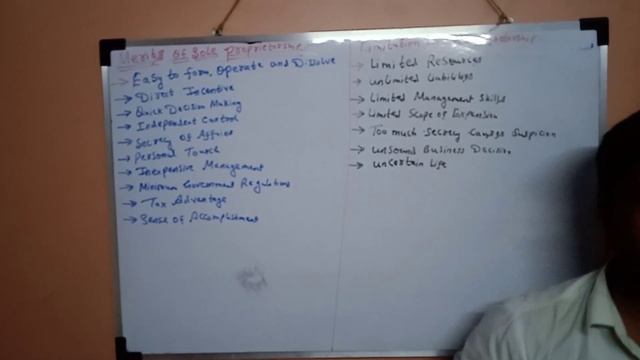 Merits of Sole Proprietorship
→ Easy to form, operate and Dissolve
→ Direct Incentive
→ Quick Decision Making
→ Independent Control
→ Secrecy of Affairs
→ Personal Touch
→ Inexpensive Management
→ Minimum Government Regulations
→ Tax Advantage
→ Sense of Accomplishment
Limitation
→ Limited Resources
→ Unlimited Liabilities
→ Limited Management Skills
→ Limited Scope of Expansion
→ Too much Secrecy Causes Suspicion
→ Unsound Business Decision
→ Uncertain Life